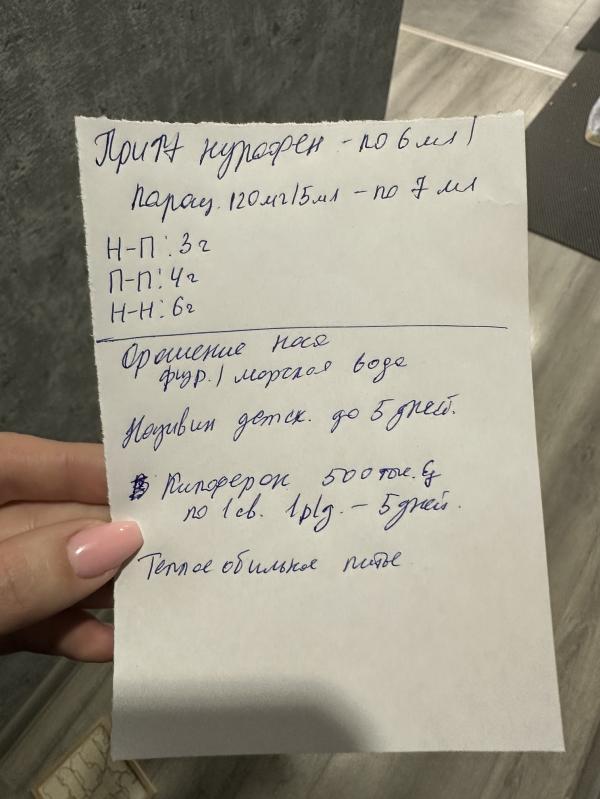 При т⁰ нурофен - по 6 мл /
парац. 120мг/5мл - по 7 мл
Н-П: 3г
П-П: 4г
Н-Н: 6г
Орошение носа
физр. / морская вода
Називин детск. до 5 дней.
Кипферон 500 тыс. Ед
по 1 св. 1р/д. - 5 дней.
Теплое обильное питье